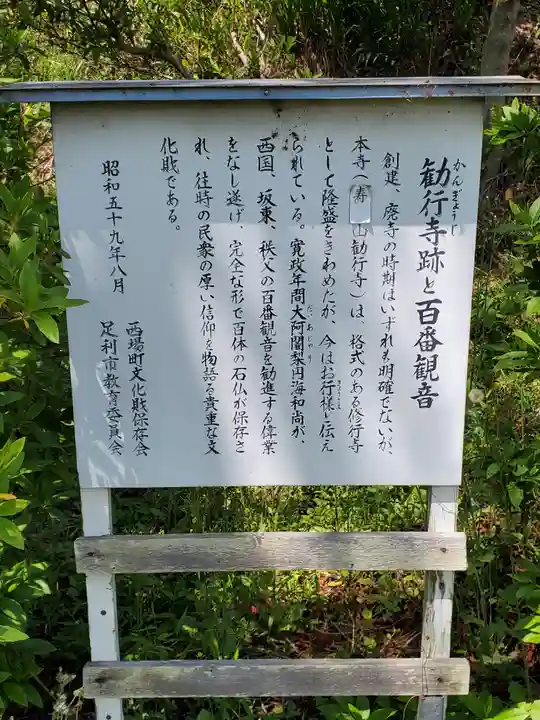 勧行寺跡と百番観音
かんぎょうじ
創建、廃寺の時期はいずれも明確でないが、
本寺(寿 山勧行寺)は、格式のある修行寺
として隆盛をきわめたが、今はお行様と伝え
られている。寛政年間大阿闍梨円海和尚が、
だいあじゃり
西国、坂東、秩父の百番観音を勧進する偉業
をなし遂げ、完全な形で百体の石仏が保存さ
れ、往時の民衆の厚い信仰を物語る貴重な文
化財である。
昭和五十九年八月
西場町文化財保存会
足利市教育委員会